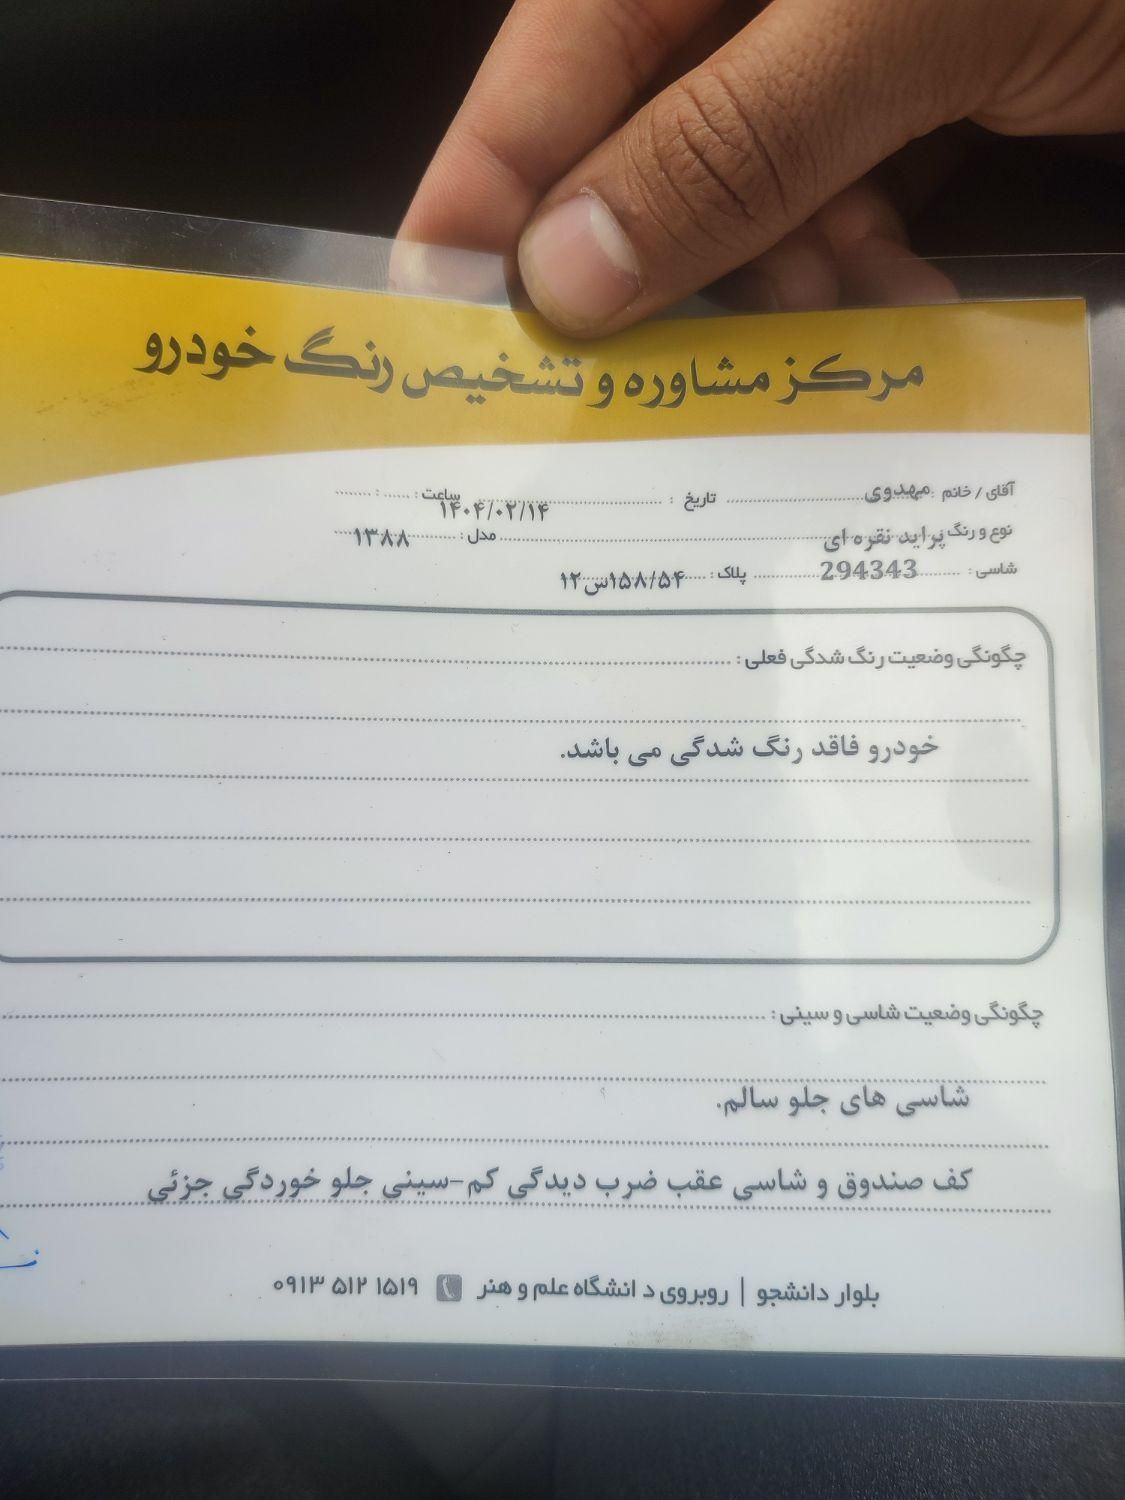 مرکز مشاوره و تشخیص رنگ خودرو
آقای / خانم : مهدوی تاریخ : ۱۴۰۴/۰۲/۱۴ ساعت : ...... : ......
نوع و رنگ پراید نقره ای مدل : ۱۳۸۸
شاسی : 294343 پلاک : ۱۵۸/۵۴س۱۲
چگونگی وضعیت رنگ شدگی فعلی :
خودرو فاقد رنگ شدگی می باشد.
چگونگی وضعیت شاسی و سینی :
شاسی های جلو سالم.
کف صندوق و شاسی عقب ضرب دیدگی کم-سینی جلو خوردگی جزئی
بلوار دانشجو | روبروی دانشگاه علم و هنر ۰۹۱۳ ۵۱۲ ۱۵۱۹